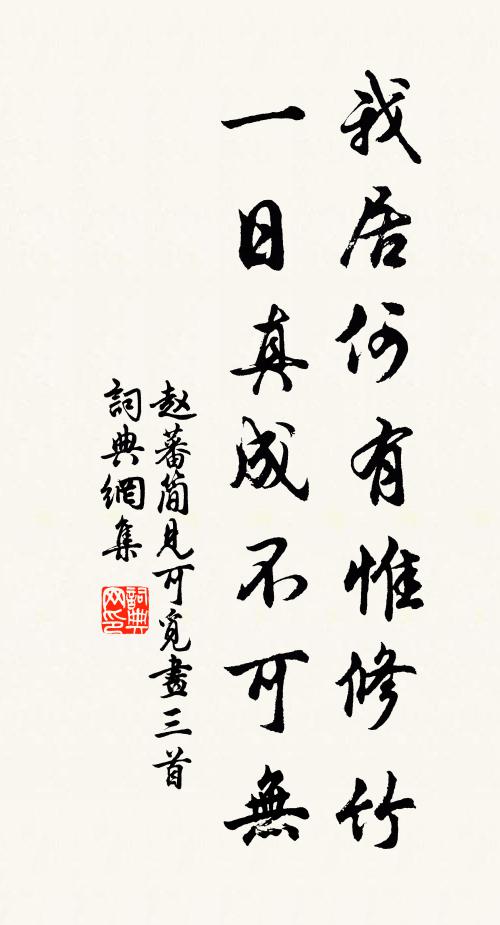 我居何有惟修竹
一日真成不可無
赵蕃簡見可覓畫三首
詞典網集
詞典
网印